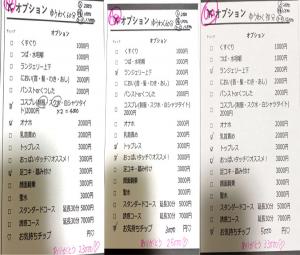 オプション
チェック オプション
くすぐり 1000円
つば・水明様
ランジェリー上下 2000円
におい(首・髪・わき・あし) 2000円
パンストorくつした 2000円
コスプレ(制服・スク水・白シャツタイト)2000円
オナホ 2000円
乳首舐め 2000円
トップレス 3000円
おっぱいタッチ♡オススメ! 3000円
足コキ・踏み付け 3000円
顔面騎乗 3000円
聖水 3000円
スタンダードコース 延長30分 5000円
誘惑コース 延長30分 7000円
お気持ちチップ 円♡
ありがとう 23000
オプション
チェック オプション
くすぐり 1000円
ランジェリー上下 2000円
におい(首・髪・わき・あし) 2000円
パンストorくつした 2000円
コスプレ(制服・スク水・白シャツタイト)2000円
オナホ 2000円
乳首舐め 2000円
トップレス 3000円
おっぱいタッチ♡オススメ! 3000円
足コキ・踏み付け 3000円
顔面騎乗 3000円
聖水 3000円
スタンダードコース 延長30分 5000円
誘惑コース 延長30分 7000円
お気持ちチップ 円♡
ありがとう 25000
オプション
チェック オプション
くすぐり 1000円
ランジェリー上下 2000円
におい(首・髪・わき・あし) 2000円
パンストorくつした 2000円
コスプレ(制服・スク水・白シャツタイト)2000円
オナホ 2000円
乳首舐め 2000円
トップレス 3000円
おっぱいタッチ♡オススメ! 3000円
足コキ・踏み付け 3000円
顔面騎乗 3000円
聖水 3000円
スタンダードコース 延長30分 5000円
誘惑コース 延長30分 7000円
お気持ちチップ 5000 円♡
ありがとう 33000